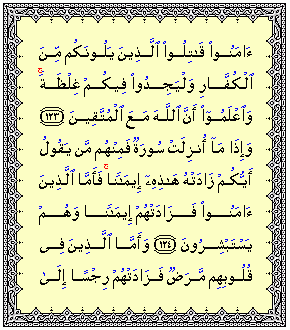 ءَامَنُوا۟ قَٰتِلُوا۟ ٱلَّذِينَ يَلُونَكُم مِّنَ
ٱلْكُفَّارِ وَلْيَجِدُوا۟ فِيكُمْ غِلْظَةً ۚ
وَٱعْلَمُوٓا۟ أَنَّ ٱللَّهَ مَعَ ٱلْمُتَّقِينَ ﴿١٢٣﴾
وَإِذَا مَآ أُنزِلَتْ سُورَةٌ فَمِنْهُم مَّن يَقُولُ
أَيُّكُمْ زَادَتْهُ هَٰذِهِۦٓ إِيمَٰنًا ۚ فَأَمَّا ٱلَّذِينَ
ءَامَنُوا۟ فَزَادَتْهُمْ إِيمَٰنًا وَهُمْ
يَسْتَبْشِرُونَ ﴿١٢٤﴾ وَأَمَّا ٱلَّذِينَ فِى
قُلُوبِهِم مَّرَضٌ فَزَادَتْهُمْ رِجْسًا إِلَىٰ